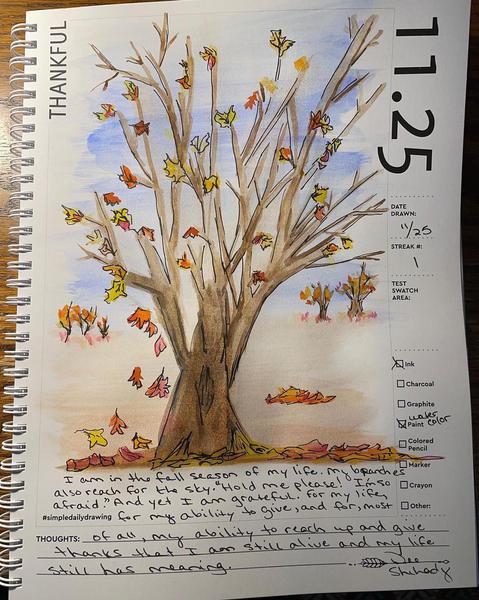 THANKFUL
11.25
DATE
DRAWN:
11/25
STREAK #:
1
TEST
SWATCH
AREA:
Ink
Charcoal
Graphite
water color
Paint
Colored
Pencil
Marker
Crayon
Other:
I am in the fall season of my life. My branches
also reach for the sky. "Hold me please! I'm so
afraid." And yet I am grateful. for my life,
#simpledailydrawing for my ability to give, and for, most
THOUGHTS: of all, my ability to reach up and give
thanks that I am still alive and my life
still has meaning.